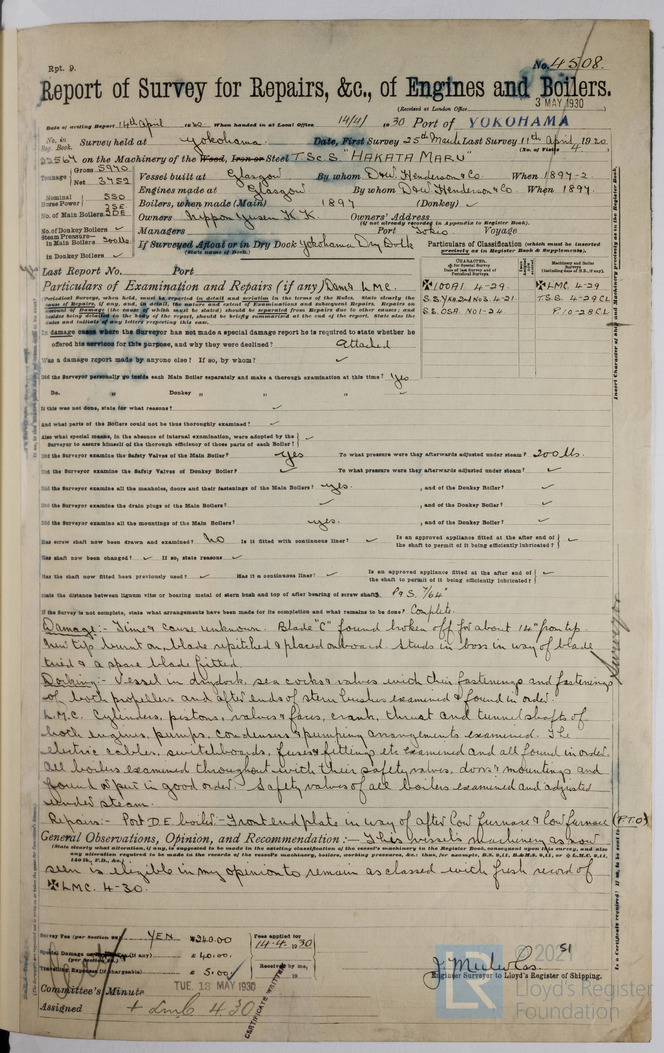 Rpt. 9.
No. 4508.
Report of Survey for Repairs, &c., of Engines and Boilers.
(Received at London Office
3 MAY 1930
Date of writing Report 14th April 1930 When handed in at Local Office 14/4/ 1930 Port of YOKOHAMA
No. in Reg. Book. Survey held at Yokohama Date, First Survey 25th March Last Survey 11th April 1930
(No. of Visits 4)
22567 on the Machinery of the Wood, Iron or Steel T.Sc.S. "HAKATA MARU"
Tonnage Gross 5970
Net 3752
Vessel built at Glasgow By whom D&W Henderson & Co. When 1897-2
Engines made at Glasgow By whom D&W Henderson & Co. When 1897.
Nominal Horse Power 550
Boilers, when made (Main) 1897 (Donkey) ✓
No. of Main Boilers
Owners Nippon Yusen K.K. Owners' Address
(if not already recorded in Appendix to Register Book).
No. of Donkey Boilers ✓
Managers Port Tokio Voyage
Steam Pressure— in Main Boilers 200 lbs
in Donkey Boilers ✓
If Surveyed Afloat or in Dry Dock Yokohama Dry Dock
(State name of Dock.)
Particulars of Classification (which must be inserted precisely as in the Register Book & Supplements).
Last Report No. Port
Particulars of Examination and Repairs (if any) LMC.
✠100A1 4-29. ✠LMC 4-29
T.S.S. 4-29 CL
In damage cases where the Surveyor has not made a special damage report he is required to state whether he offered his services for this purpose, and why they were declined? Attached
Was a damage report made by anyone else? If so, by whom? ✓
Did the Surveyor personally go inside each Main Boiler separately and make a thorough examination at this time? Yes
Do. " Donkey " " " ✓
If this was not done, state for what reasons? ✓
And what parts of the Boilers could not be thus thoroughly examined? ✓
Also what special means, in the absence of internal examination, were adopted by the Surveyor to assure himself of the thorough efficiency of those parts of each Boiler? ✓
Did the Surveyor examine the Safety Valves of the Main Boiler? Yes To what pressure were they afterwards adjusted under steam? 200 lbs.
Did the Surveyor examine the Safety Valves of Donkey Boiler? ✓ To what pressure were they afterwards adjusted under steam? ✓
Did the Surveyor examine all the manholes, doors and their fastenings of the Main Boilers? yes. , and of the Donkey Boiler? ✓
Did the Surveyor examine the drain plugs of the Main Boilers? ✓ , and of the Donkey Boiler? ✓
Did the Surveyor examine all the mountings of the Main Boilers? yes. , and of the Donkey Boiler? ✓
Has screw shaft now been drawn and examined? No Is it fitted with continuous liner? ✓ Is an approved appliance fitted at the after end of the shaft to permit of it being efficiently lubricated? ✓
Has shaft now been changed? ✓ If so, state reasons ✓
Has the shaft now fitted been previously used? ✓ Has it a continuous liner? ✓ Is an approved appliance fitted at the after end of the shaft to permit of it being efficiently lubricated? ✓
State the distance between lignum vitæ or bearing metal of stern bush and top of after bearing of screw shaft. P&S. 7/64"
If the Survey is not complete, state what arrangements have been made for its completion and what remains to be done? Complete.
Damage:- Time & cause unknown. Blade "C" found broken off for about 14" from tip.
New tip burnt on, blade repitched & placed onboard. Studs in boss in way of blade
tried & a spare blade fitted.
Docking:- Vessel in drydock, sea cocks & valves with their fastenings and fastenings
of both propellers and after ends of stern bushes examined & found in order.
L.M.C. Cylinders, pistons, valves & faces, crank, thrust and tunnel shafts of
both engines, pumps, condensers & pumping arrangements examined. The
electric cables, switchboards, fuses & fittings etc examined and all found in order.
All boilers examined throughout with their safety valves, doors & mountings and
found or put in good order. Safety valves of all boilers examined and adjusted
under steam.
Repairs:- Port D.E. boiler - Front end plate in way of after low furnace & low furnace (P.T.O)
General Observations, Opinion, and Recommendation:— This vessel's machinery as now
seen is eligible in my opinion to remain as classed with fresh record of
✠LMC. 4-30.
Survey Fee (per Section 28) YEN 340.00
Special Damage 40.00
Travelling Expenses (if chargeable) 5.00
Fees applied for 14.4.1930
Received by me, 19
Engineer Surveyor to Lloyd's Register of Shipping.
Committee's Minute TUE. 13 MAY 1930
Assigned + LMC 4.30
CERTIFICATE WRITTEN
© 2021
LR
Lloyd's Register
Foundation